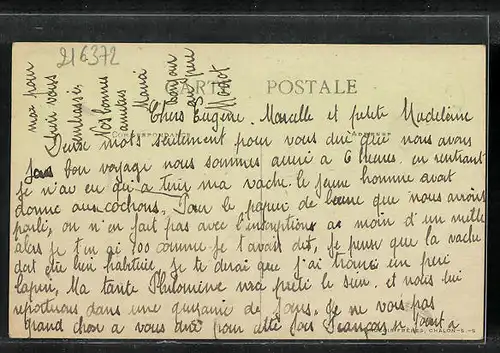 216372
CARTE POSTALE
CORRESPONDANCE ADRESSE
Chers Eugène, Marcelle et petite Madeleine
Deux mots seulement pour vous dire que nous avons
fais bon voyage nous sommes arrivé a 6 heures. en rentrant
je n'av eu qu'a tirer ma vache. le jeune homme avait
donné aux cochons. Pour le papier de que nous avions
parlé, on n'en fait pas avec l'inscriptions a moin d'un mille
alors je t'en ai 100 comme je t'avais dit, je pense que la vache
doit être bien habituée, je te dirai que j'ai trouvé un père
lapin, Ma tante Philomène m'a prêté le sien, et nous lui
reporterons dans une quinzaine de jours. Je ne vous
grand chose a vous dire pour cette fois François
moi pour
vous
embrasser
Vos bonnes
amitiés
Maria
bonjour
au père
FRÈRES, CHALON-S-S